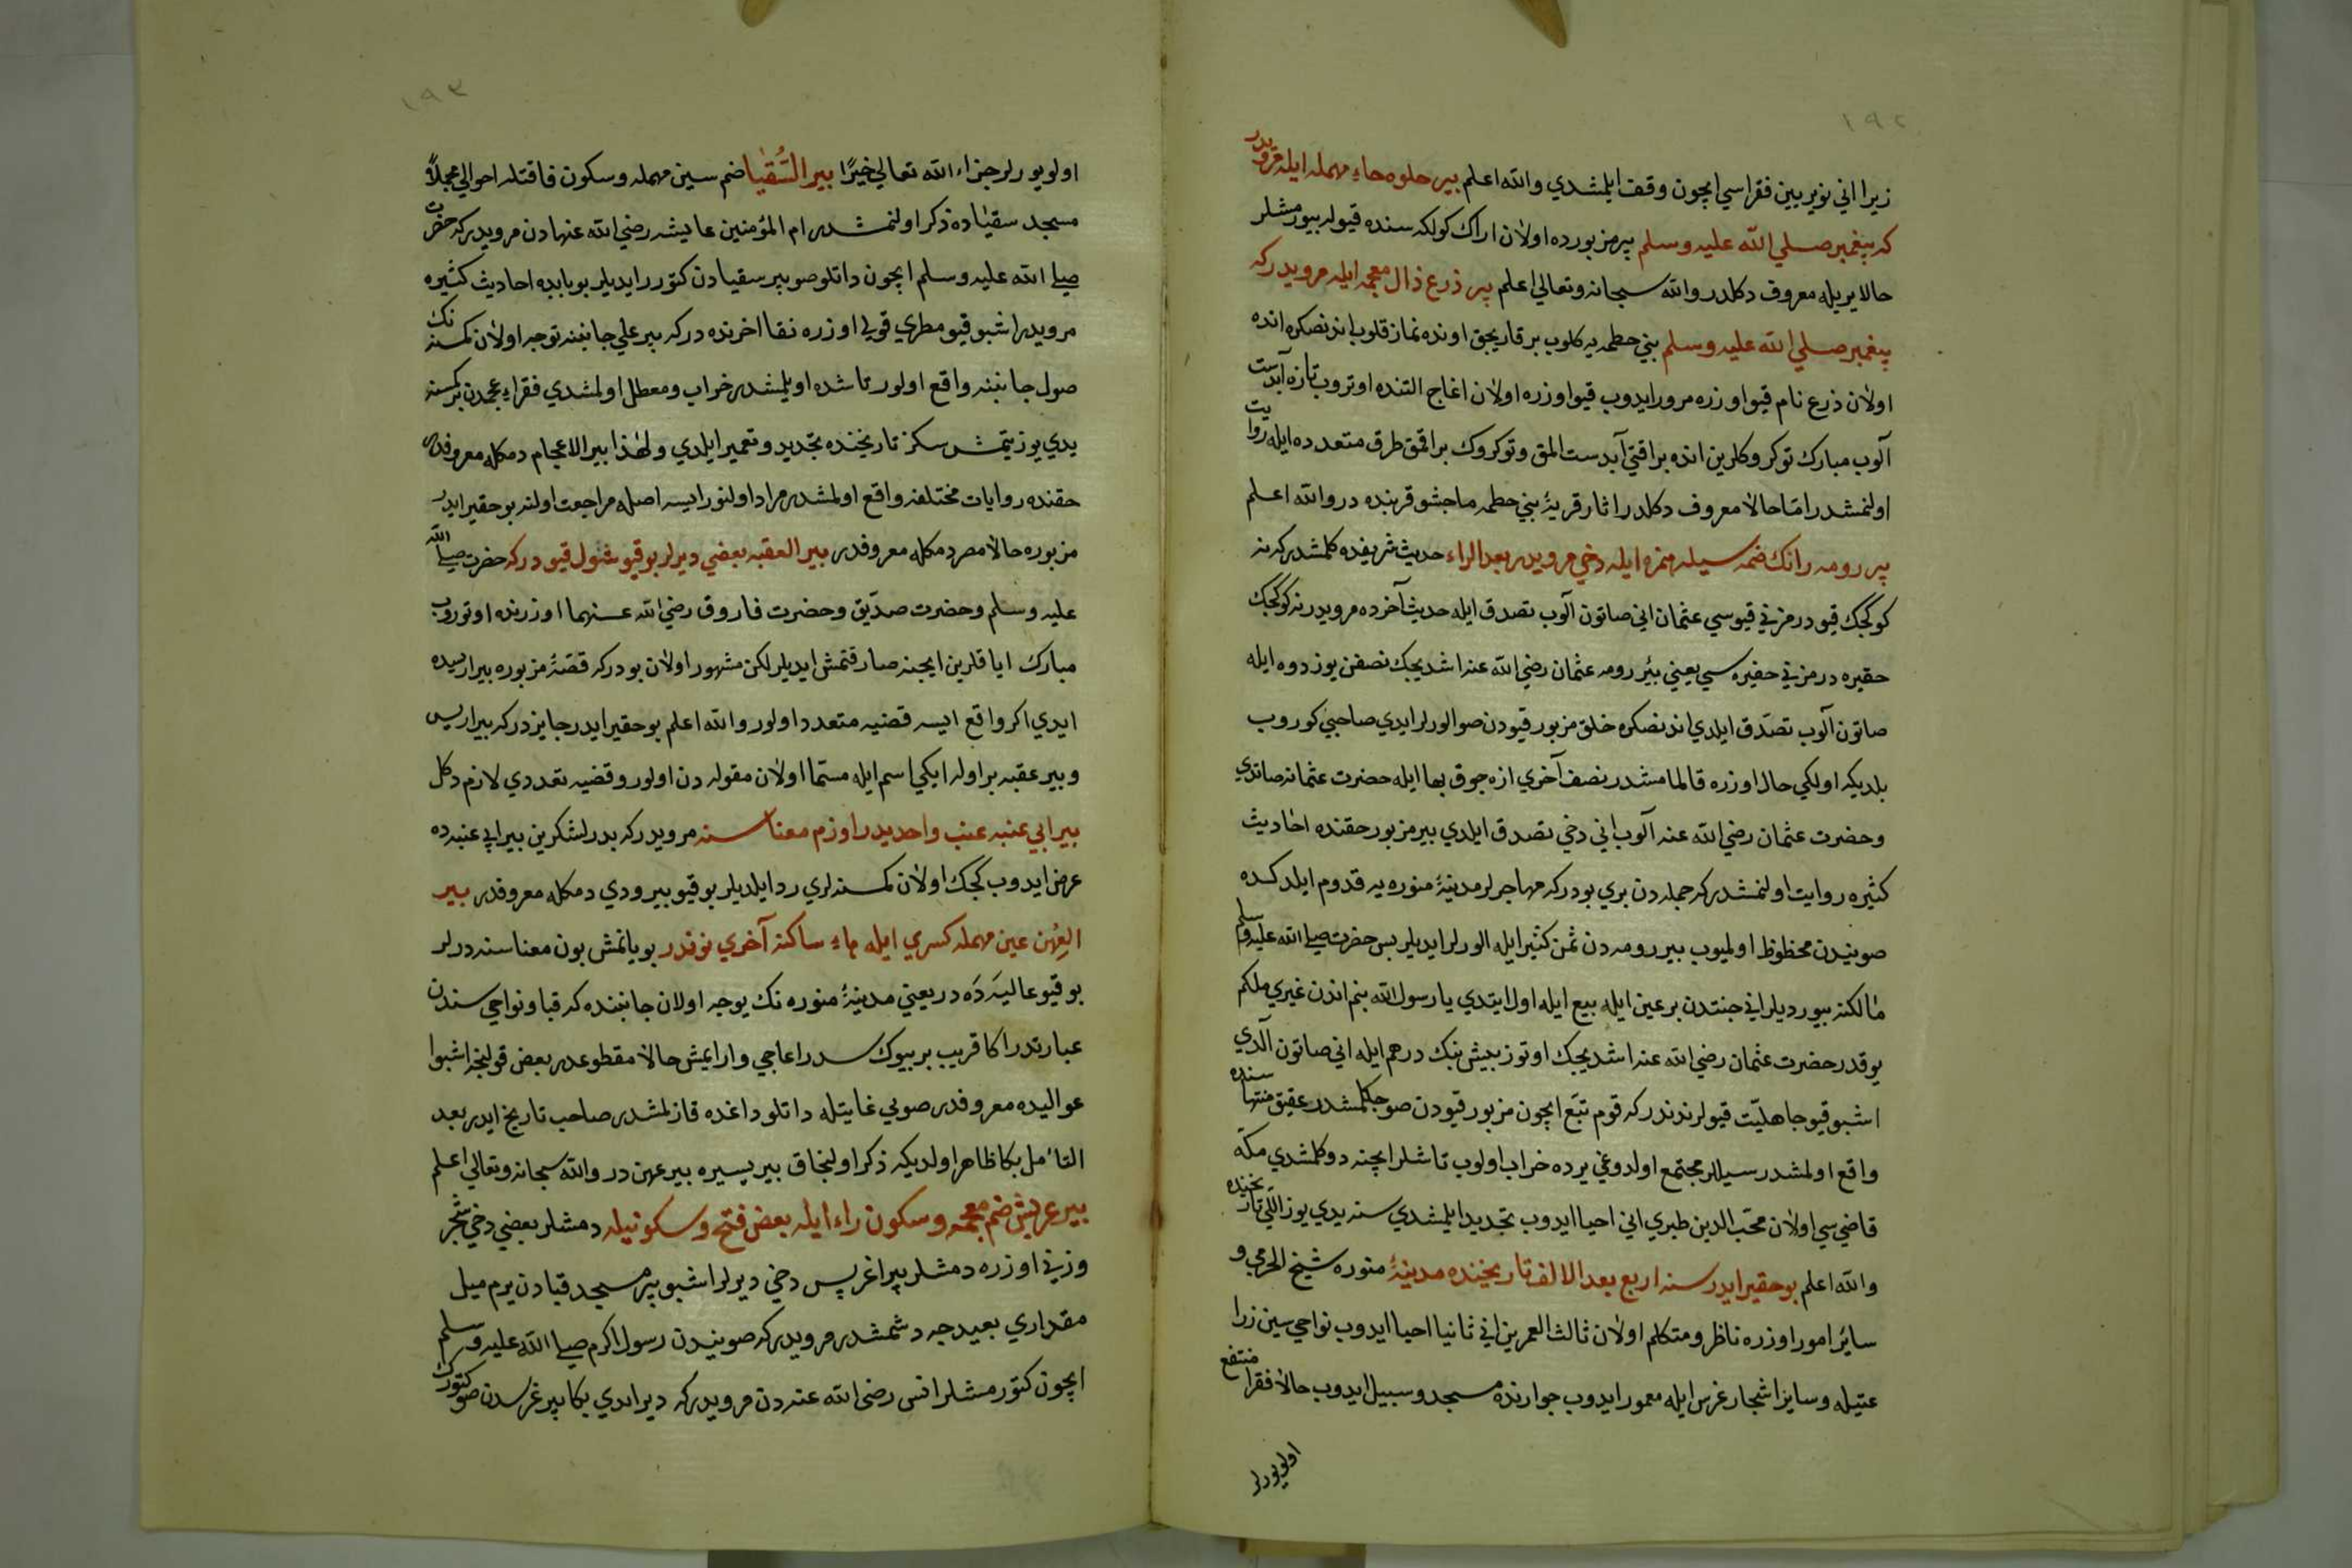 ١٩٢
زيرا اني نوير بين فقراسي ايچون وقف ايلمشدي والله اعلم بير حلوه حاءِ مهمله ايله مرويدر
كه پيغمبر صلي الله عليه وسلم بير مزبورده اولان اراك كولكه سنده قيوله بيورمشلر
حالا يريله معروف دكلدر والله سبحانه وتعالي اعلم بير ذرع ذال معجمه ايله مرويدركه
پيغمبر صلي الله عليه وسلم بني حطمه يه كلوب بر قاريجق اونده نماز قلوب اندنصكره انده
اولان ذرع نام قيو اوزره مرور ايدوب قيو اوزره اولان اغاج التنده اوتروب تازه آبدست
آلوب مبارك توكروكلرين انده براقتي آبدست المق وتوكروك براقمق طرق متعدده ايله روايت
اولنمشدر امّا حالا معروف دكلدر اثار قريۀ بني حطمه ماجشو قربنده در والله اعلم
بير رومه رانك ضمه سيله همزه ايله دخي مرويدر بعد الراء حديث شريفده كلمشدركه نه
كوكجك قيودر مزني قيوسي عثمان اني صاتون آلوب تصدق ايله حديث آخرده مرويدر نه كوكجك
حقيره در مزني حفيره سي يعني بئر رومه عثمان رضي الله عنه اشديجك نصفن يوز دوه ايله
صاتون آلوب تصدّق ايلدي اندنصكره خلق مزبور قيودن صو الورلر ايدي صاحبي كوروب
بلديكه اولكي حال اوزره قالمامشدر نصف آخري ازه جوق بها ايله حضرت عثمانه صاتدي
وحضرت عثمان رضي الله عنه آلوب اني دخي تصدق ايلدي بير مزبور حقنده احاديث
كثيره روايت اولنمشدركه جمله دن بري بودركه مهاجرلر مدينۀ منوره يه قدوم ايلدكده
صويندن محظوظ اولميوب بير رومه دن ثمن كثير ايله الورلر ايديلر بس حضرت صلي الله عليه وسلم
مالكنه بيورديلر اني جنتدن بر عين ايله بيع ايله اول ايتدي يا رسول الله بنم اندن غيري ملكم
يوقدر حضرت عثمان رضي الله عنه اشديجك اوتوز بيش بنك درهم ايله اني صاتون آلدي
اشبو قيو جاهليّت قيولرندندركه قوم تبّع ايچون مزبور قيودن صو جكلمشدر عقيق منتهاسنده
واقع اولمشدر سيللر مجتمع اولدوغي يرده خراب اولوب تاشلر ايچنه دوكلمشدي مكّه
قاضي سي اولان محبّ الدين طبري اني احيا ايدوب تجديد ايلمشدي سنه يدي يوز اللّي تاريخنده
والله اعلم بو حقير ايدر سنه اربع بعد الالف تاريخنده مدينۀ منوره شيخ الحرمي و
سائر امور اوزره ناظر ومتكلم اولان ثالث العمرين اني ثانيا احيا ايدوب نواحي سين زرا
عتيله وسايز اشجار غرس ايله معمور ايدوب جوارنده مسجد وسبيل ايدوب حالا فقرا منتفع
اولويورلر
١٩٣
اولويورلر جزاءالله تعالي خيرًا بير السُّقيٰا ضم سين مهمله وسكون قافتله احوالي مجملاً
مسجد سقيٰاده ذكر اولنمشدر ام المؤمنين عايشه رضي الله عنهادن مرويدركه حضرت
صلي الله عليه وسلم ايچون داتلو صو بير سقيادن كتورر ايديلر بو بابده احاديث كثيره
مرويدر اشبو قيو مطري قولي اوزره نقا اخرنده دركه بير علي جانبنه توجه اولان كمسنه نك
صول جانبنه واقع اولور تاشده اويلمشدر خراب ومعطل اولمشدي فقراءِ عجمدن بر كمسنه
يدي يوز يتمش سكز تاريخنده تجديد وتعمير ايلدي ولهٰذا بير الاعجام دمكله معروفدر
حقنده روايات مختلفه واقع اولمشدر مراد اولنور ايسه اصله مراجعت اولنه بو حقير ايدر
مزبوره حالا مصر دمكله معروفدر بير العقبه بعضي ديرلر بو قيو شول قيودركه حضرت صلي الله
عليه وسلم وحضرت صدّيق وحضرت فاروق رضي الله عنهما اوزرنده اوتوروب
مبارك اياقلرين ايچنه صارقتمش ايديلر لكن مشهور اولان بودركه قصّۀ مزبوره بير اريسده
ايدي اكر واقع ايسه قضيه متعدد اولور والله اعلم بو حقير ايدر جايزدركه بير اريس
وبير عقبه بر اوله ايكي اسم ايله مسمّا اولان مقوله دن اولور وقضيه تعددي لازم دكل
بير ابي عنبه عنب واحديدر اوزم معناسنه مرويدركه بدر لشكرين بير ابي عنبه ده
عرض ايدوب كجك اولان كمسنه لري رد ايلديلر بو قيو بير ودي دمكله معروفدر بير
العِهْن عين مهمله كسري ايله هاءِ ساكنه آخري نوندر بويانمش يون معناسنه درلر
بو قيو عاليَه دَه در يعني مدينۀ منوره نك يوجه اولان جانبنده كه قبا ونواحي سندن
عبارتدر اكا قريب بر بيوك سدر اغاجي وار ايمش حالا مقطوعدر بعض قولنجه اشبوا
عواليده معروفدر صويي غايتله داتلو داغده قازلمشدر صاحب تاريخ ايدر بعد
التأمل بكا ظاهر اولديكه ذكر اولنجاق بير يسيره بير عهن در والله سبحانه وتعالي اعلم
بير غرس ضم معجمه وسكون راء ايله بعض فتح وسكونيله دمشلر بعضي دخي شجر
وزني اوزره دمشلر بير اغريس دخي ديرلر اشبو بير مسجد قبادن يرم ميل
مقداري بعيدجه دشمشدر مرويدركه صويندن رسول اكرم صلي الله عليه وسلم
ايچون كتورمشلر انس رضي الله عنه دن مرويدركه دير ايدي بكا بير غرسدن صو كتورك